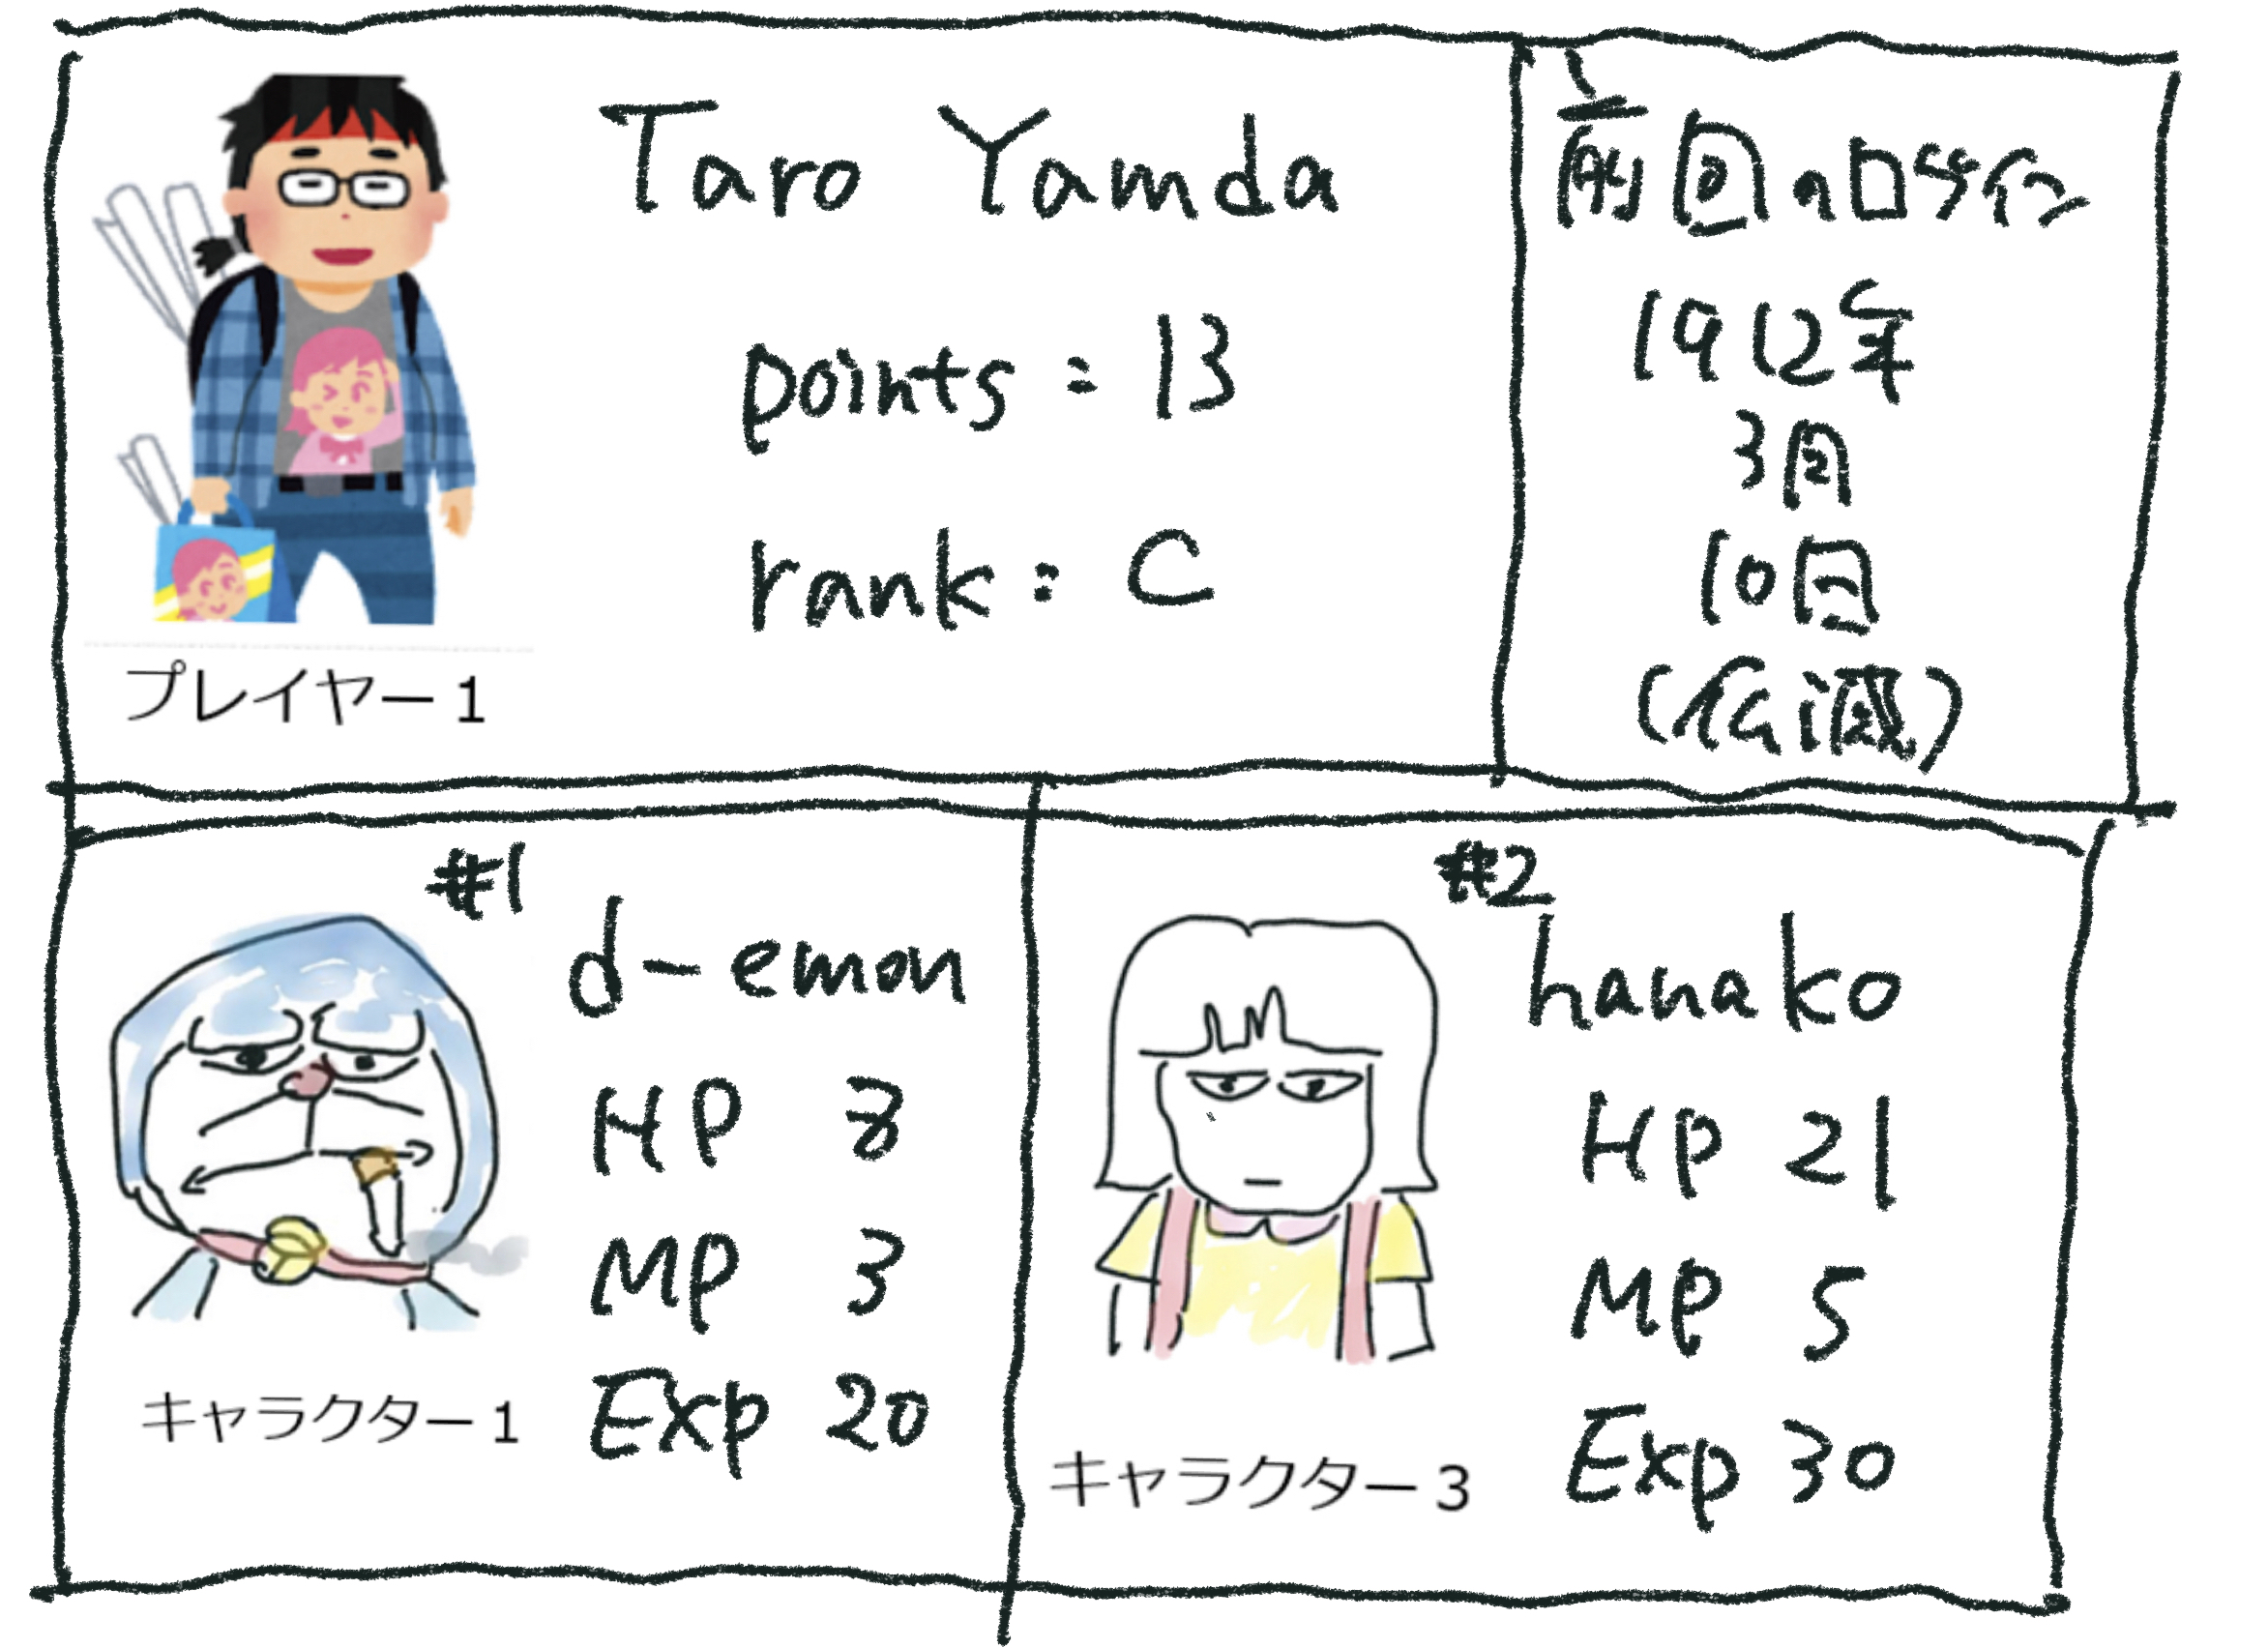 Taro Yamda
points : 13
rank : C
プレイヤー1
前回のログイン
1912年
3月
10日
(仏滅)
#1
d-emon
HP 8
MP 3
Exp 20
キャラクター1
#2
hanako
HP 21
MP 5
Exp 30
キャラクター3